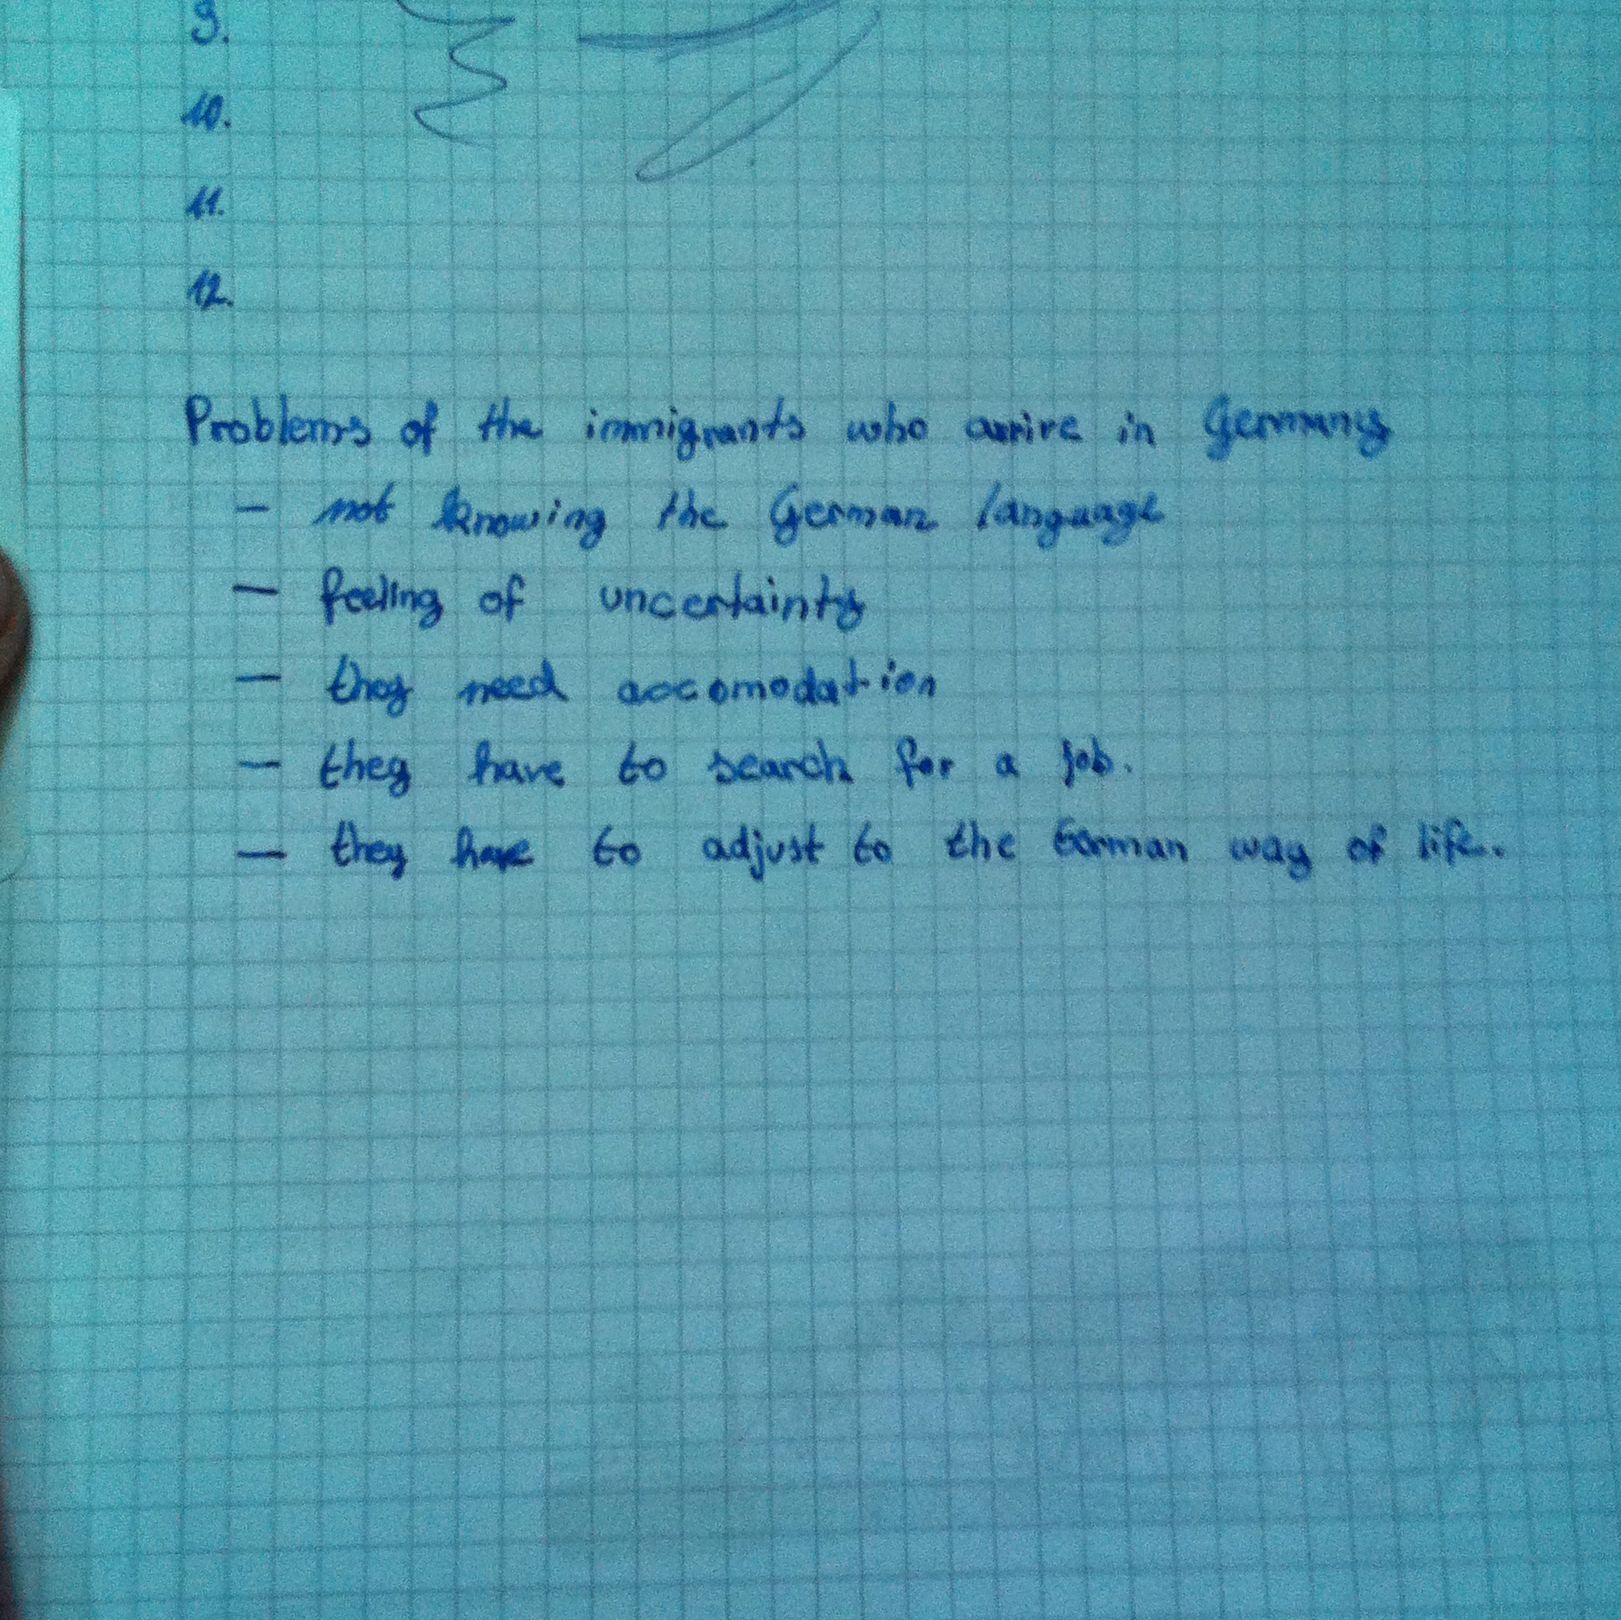 9.
10.
11.
12.
Problems of the immigrants who arrive in Germany
- not knowing the German language
- feeling of uncertainty
- they need accomodation
- they have to search for a job.
- they have to adjust to the German way of life.